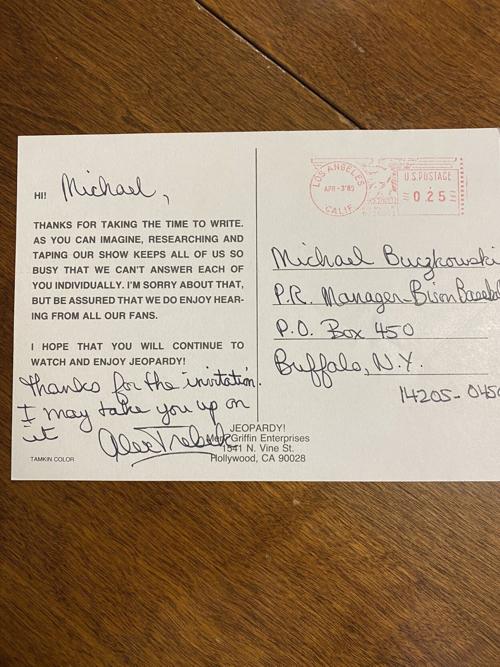 HI! Michael,
THANKS FOR TAKING THE TIME TO WRITE.
AS YOU CAN IMAGINE, RESEARCHING AND
TAPING OUR SHOW KEEPS ALL OF US SO
BUSY THAT WE CAN'T ANSWER EACH OF
YOU INDIVIDUALLY. I'M SORRY ABOUT THAT,
BUT BE ASSURED THAT WE DO ENJOY HEAR-
ING FROM ALL OUR FANS.
I HOPE THAT YOU WILL CONTINUE TO
WATCH AND ENJOY JEOPARDY!
Thanks for the invitation.
I may take you up on
it
Alex Trebek
TAMKIN COLOR
LOS ANGELES
APR-3'89
CALIF
U.S. POSTAGE
0.25
Michael Buczkowski
P.R. Manager-Bison Baseball
P.O. Box 450
Buffalo, N.Y.
14205-0450
JEOPARDY!
Merv Griffin Enterprises
1541 N. Vine St.
Hollywood, CA 90028